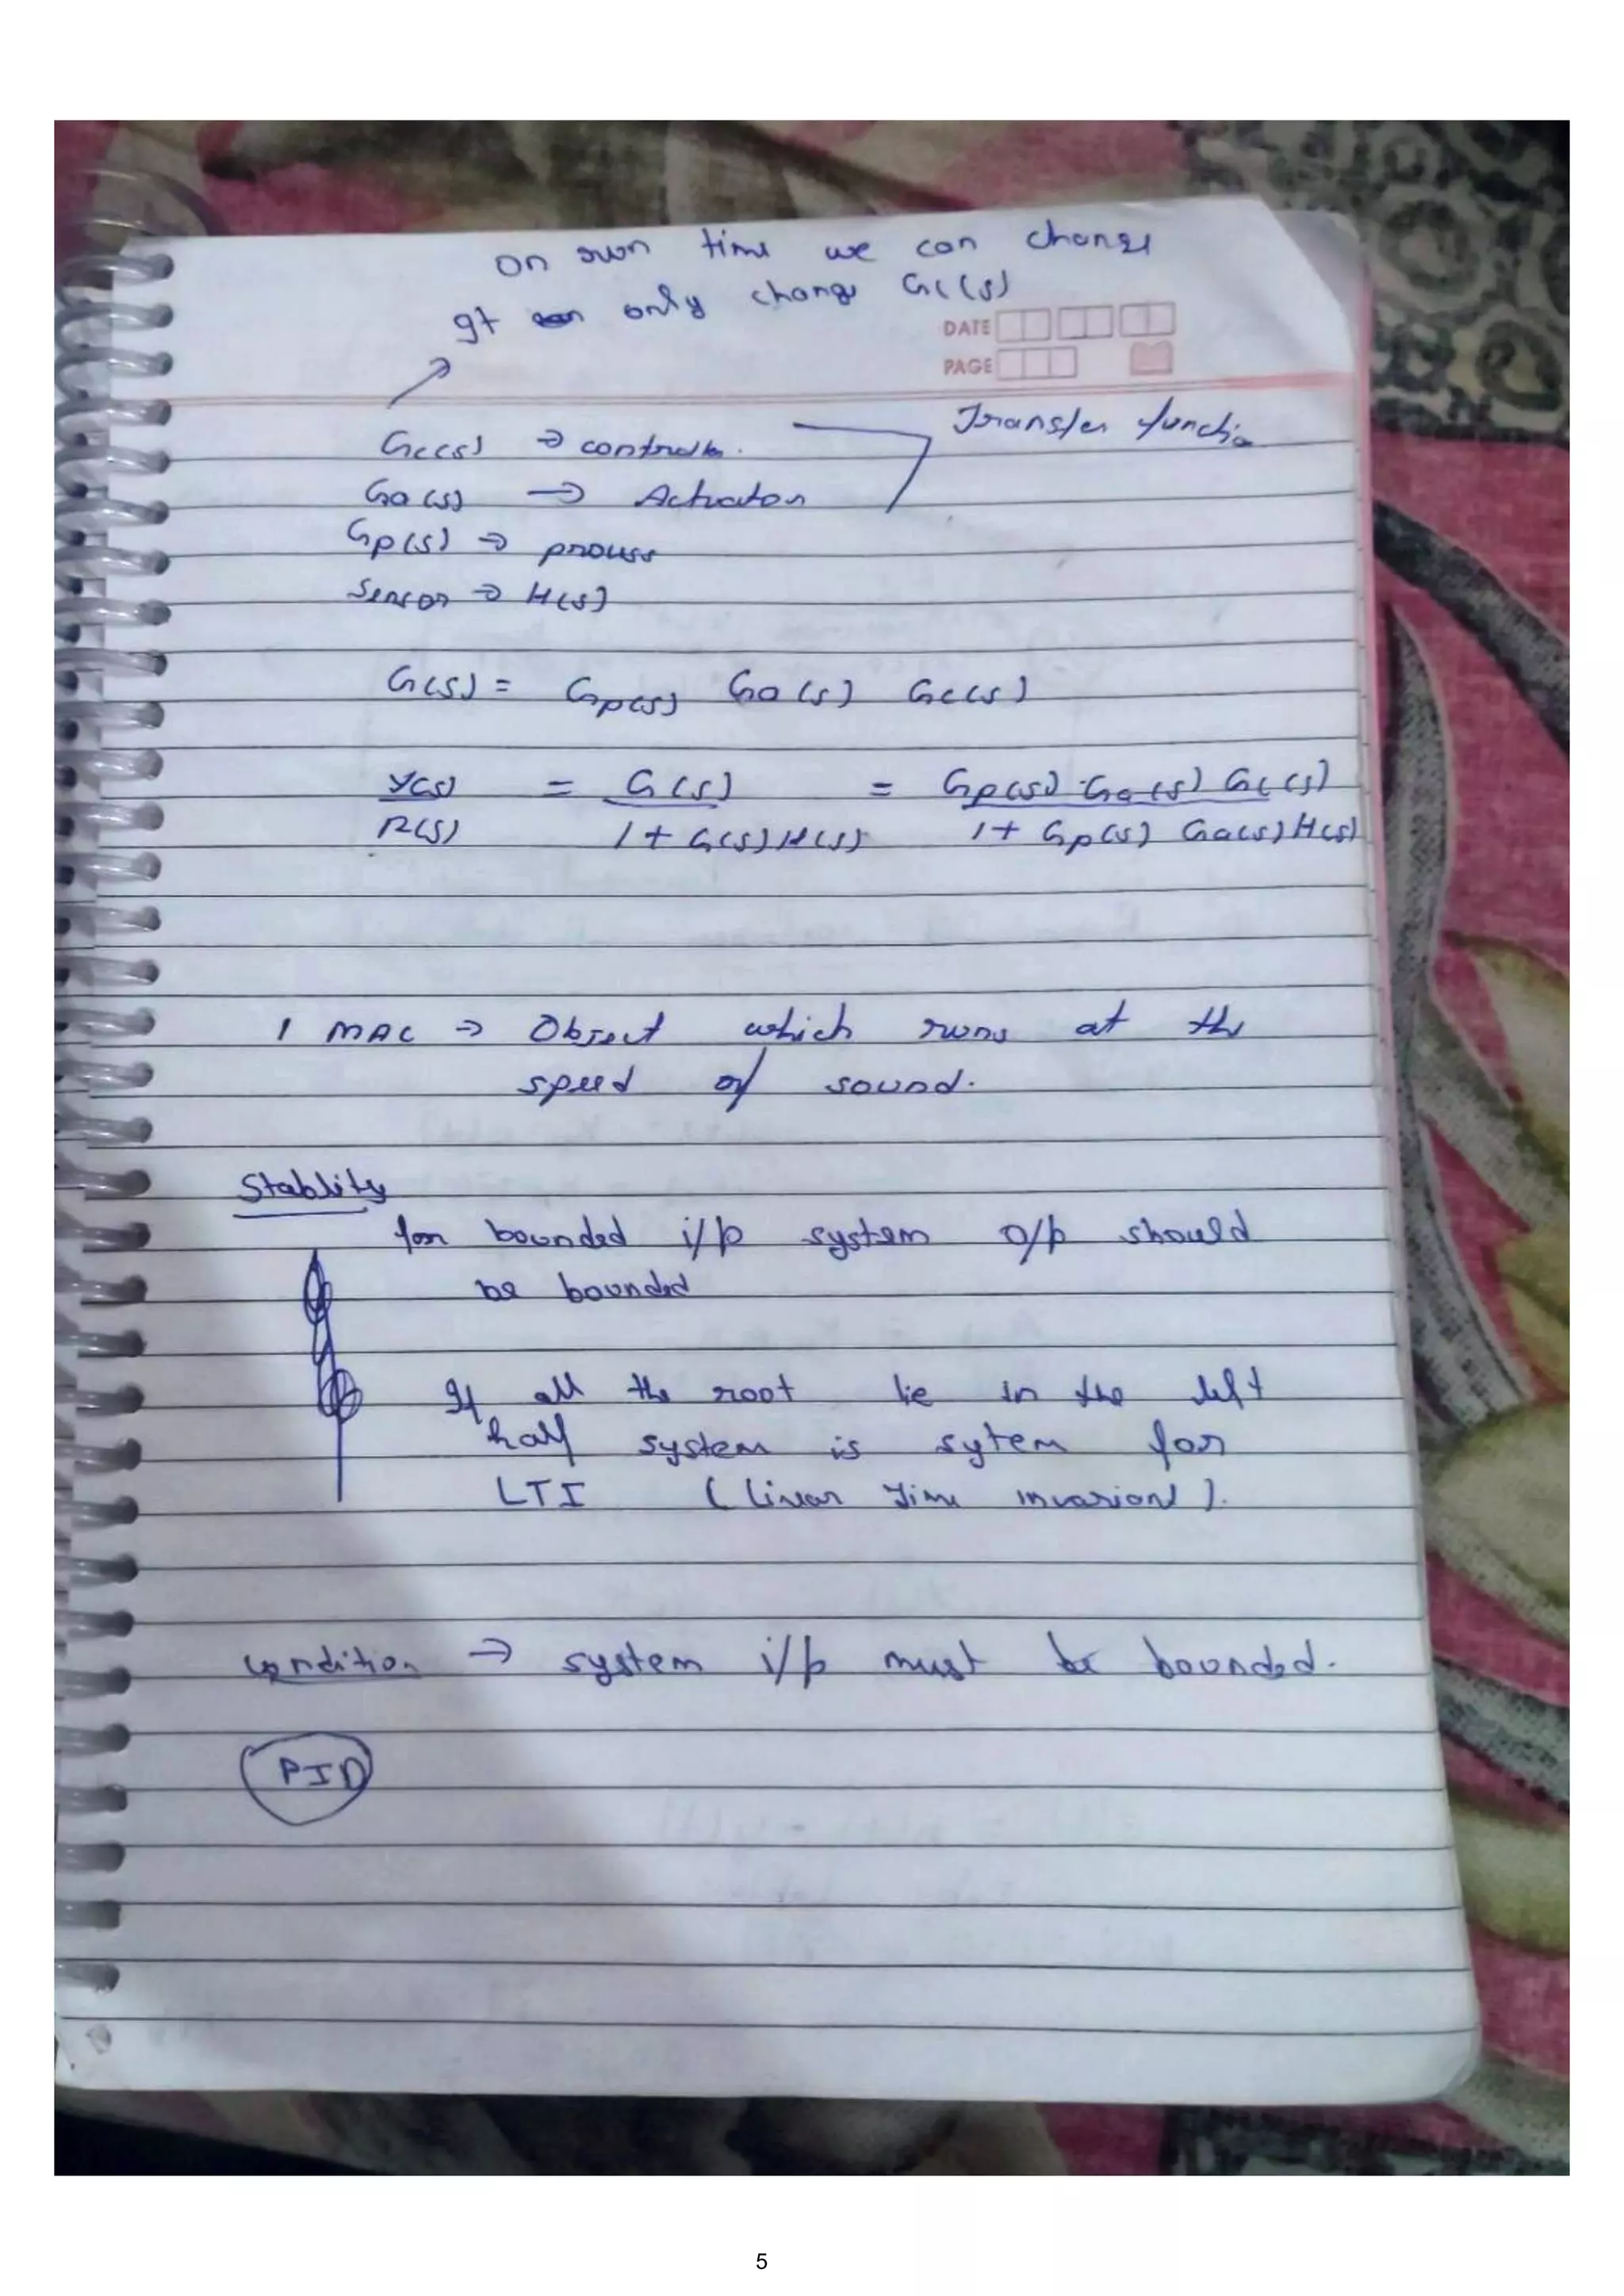 on own time we can change
It only change Gc(s)
DATE
PAGE
Gc(s) → controller.
Transfer function
Ga(s) → Actuator
Gp(s) → process
Sensor → H(s)
G(s) = Gp(s) Ga(s) Gc(s)
Y(s) = G(s) = Gp(s) · Ga(s) Gc(s)
R(s) 1 + G(s) H(s) 1 + Gp(s) Ga(s) H(s)
1 MAC → Object which runs at the
speed of sound.
Stablity
for bounded i/p system o/p should
be bounded
If all the root lie in the left
half system is sytem for
LTI (Linear Time invariant).
condition → system i/p must be bounded.
PID
5